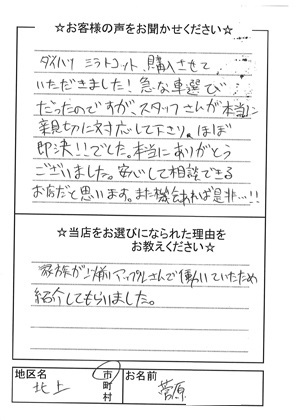 ☆お客様の声をお聞かせください☆
ダイハツ ミラトコット、購入させて
いただきました！急な車選び
だったのですが、スタッフさんが本当に
親切に対応して下さり、ほぼ
即決！！でした。本当にありがとう
ございました。安心して相談できる
お店だと思います。また機会あれば是非…!!
☆当店をお選びになられた理由を
お教えください☆
家族が以前アップルさんで働いていたため
紹介してもらいました。
地区名 北上 市町村 お名前 菅原